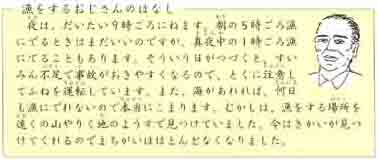 漁をするおじさんのはなし
夜は、だいたい9時ごろにねます。朝の5時ごろ漁
にでるときはまだいいのですが、真夜中の1時ごろ漁
にでることもあります。そういう日がつづくと、すい
みん不足で事故がおきやすくなるので、とくに注意し
てふねを運転しています。また、海があれれば、何日
も漁にでれないので本当にこまります。むかしは、漁をする場所を
遠くの山やりく地のようすで見つけていました。今はきかいが見つ
けてくれるのでまちがいはほとんどなくなりました。